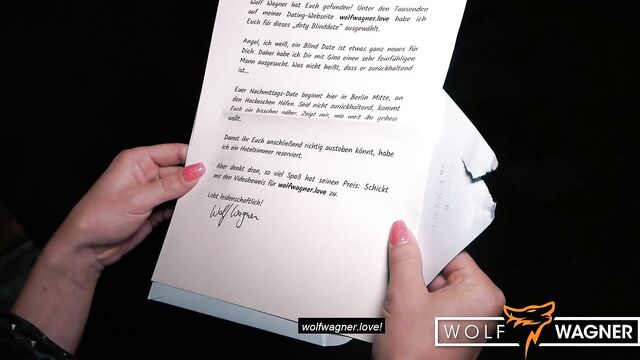 Wolf Wagner hat Euch gefunden! Unter den Tausenden
auf meiner Dating-Webseite wolfwagner.love habe ich
Euch für dieses „dirty Blinddate" ausgewählt.
Angel, ich weiß, ein Blind Date ist etwas ganz neues für
Dich. Daher habe ich Dir mit Gino einen sehr feinfühligen
Mann ausgesucht. Was nicht heißt, dass er zurückhaltend
ist...
Euer Nachmittags-Date beginnt hier in Berlin Mitte, an
den Hackeschen Höfen. Seid nicht zurückhaltend, kommt
Euch ein bisschen näher. Zeigt mir, wie weit ihr gehen
wollt.
Damit Ihr Euch anschließend richtig austoben könnt, habe
ich ein Hotelzimmer reserviert.
Aber denkt dran, so viel Spaß hat seinen Preis: Schickt
mir den Videobeweis für wolfwagner.love zu.
Lebt leidenschaftlich!
Wolf Wagner
wolfwagner.love!
WOLF WAGNER